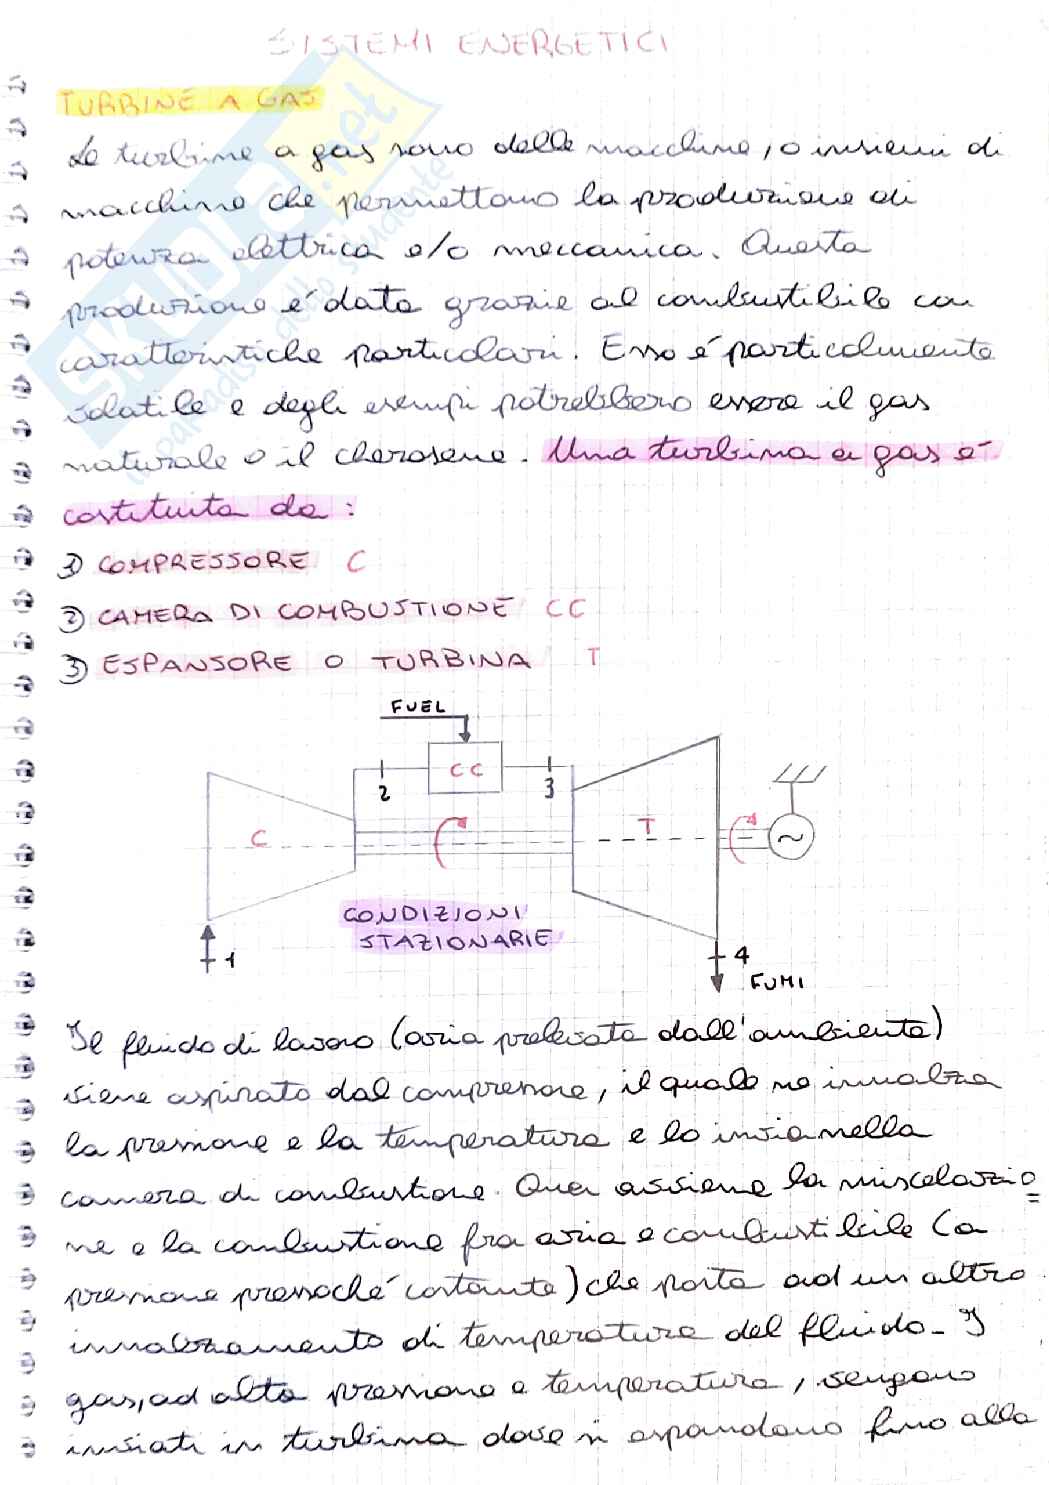 SISTEMI ENERGETICI
TURBINE A GAS
Le turbine a gas sono delle macchine, o insiemi di
macchine che permettono la produzione di
potenza elettrica e/o meccanica. Questa
produzione è data grazie al combustibile con
caratteristiche particolari. Esso è particolarmente
volatile e degli esempi potrebbero essere il gas
naturale o il cherosene. Una turbina a gas è
costituita da:
1) COMPRESSORE C
2) CAMERA DI COMBUSTIONE CC
3) ESPANSORE O TURBINA T
FUEL
2 CC 3
C T ~
CONDIZIONI
STAZIONARIE
1 4
FUMI
Il fluido di lavoro (aria prelevata dall'ambiente)
viene aspirato dal compressore, il quale ne innalza
la pressione e la temperatura e lo invia nella
camera di combustione. Qui avviene la miscelazio
ne e la combustione fra aria e combustibile (a
pressione pressoché costante) che porta ad un altro
innalzamento di temperatura del fluido. I
gas, ad alta pressione e temperatura, vengono
inviati in turbina dove si espandono fino alla
SKUOLA.net
il paradiso dello studente